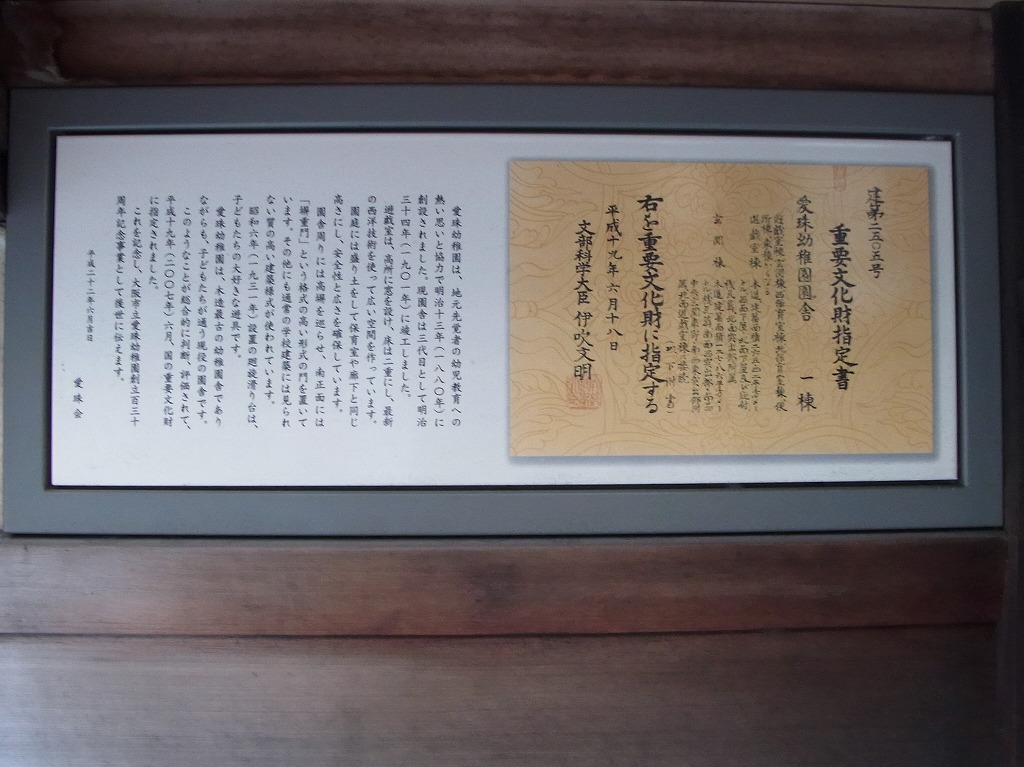 建第二五〇五号
重要文化財指定書
愛珠幼稚園園舎 一棟
玄関棟
右を重要文化財に指定する
平成十九年六月十八日
文部科学大臣 伊吹文明
愛珠幼稚園は、地元先覚者の幼児教育への
熱い思いと協力で明治十三年(一八八〇年)に
創設されました。現園舎は三代目として明治
三十四年(一九〇一年)に竣工しました。
遊戯室は、高所に窓を設け、床は二重にし、最新
の西洋技術を使って広い空間を作っています。
園庭には盛り土をして保育室や廊下と同じ
高さにし、安全性と広さを確保しています。
園舎周りには高塀を巡らせ、南正面には
「塀重門」という格式の高い形式の門を置いて
います。その他にも通常の学校建築には見られ
ない質の高い建築様式が使われています。
昭和六年(一九三一年)設置の廻旋滑り台は、
子どもたちの大好きな遊具です。
愛珠幼稚園は、木造最古の幼稚園舎であり
ながらも、子どもたちが通う現役の園舎です。
このようなことが総合的に判断、評価されて、
平成十九年(二〇〇七年)六月、国の重要文化財
に指定されました。
これを記念し、大阪市立愛珠幼稚園創立百三十
周年記念事業として後世に伝えます。
平成二十二年六月吉日
愛珠会